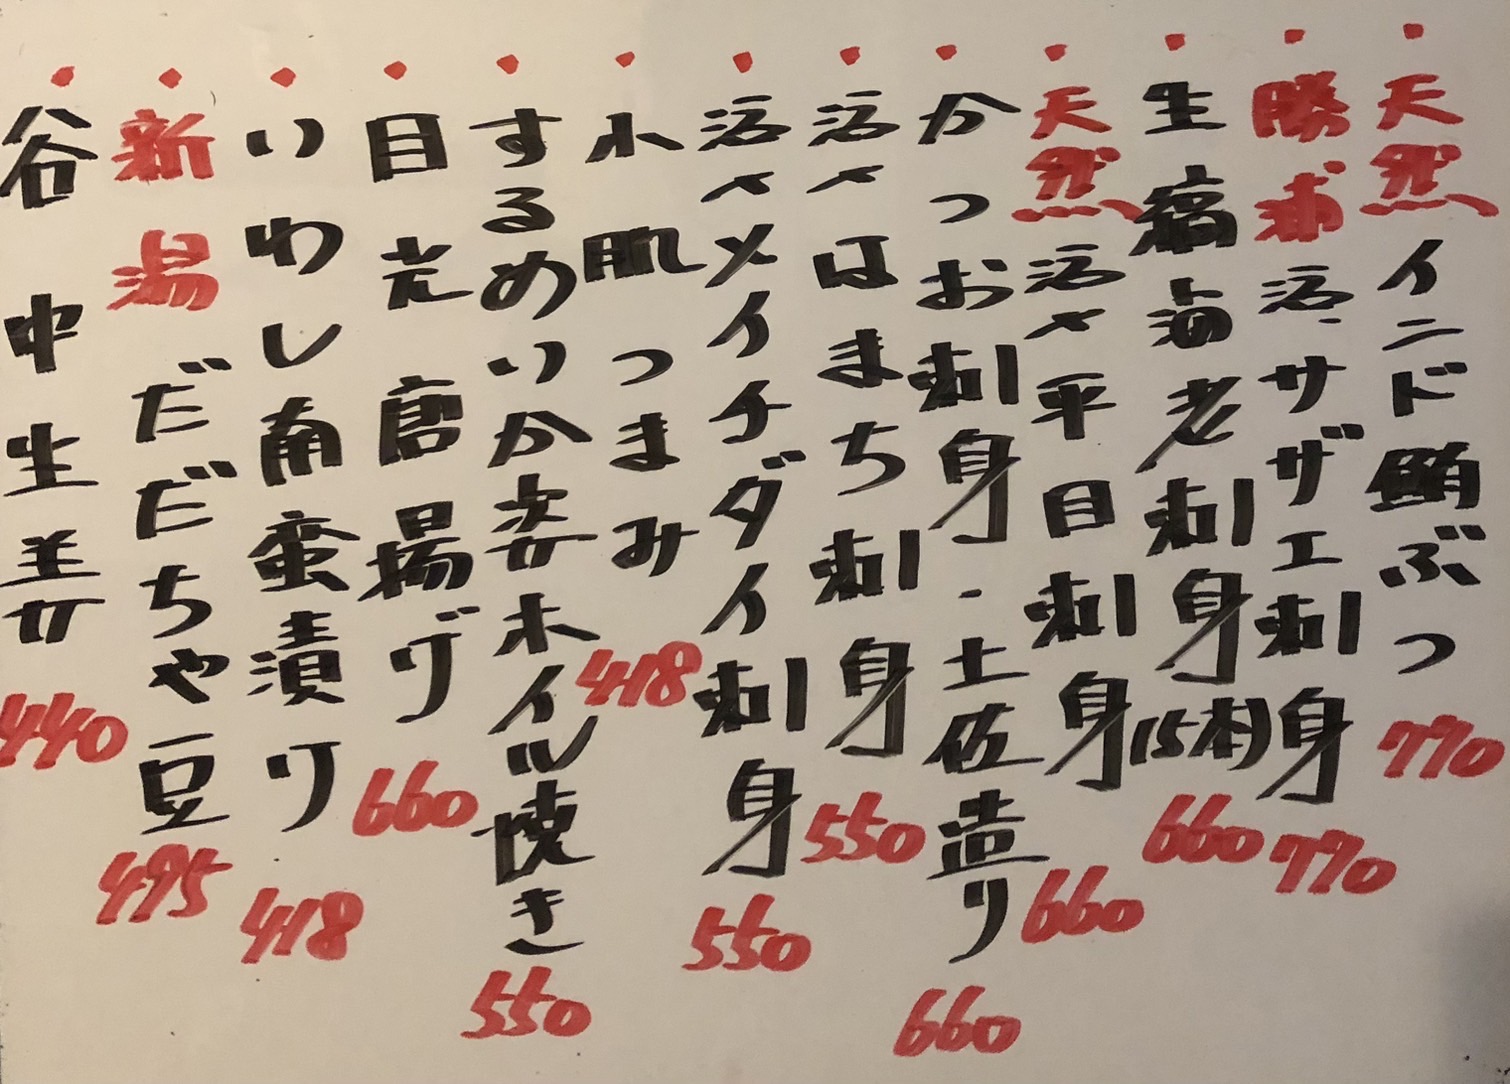 ・天然インド鮪ぶつ 770
・勝浦活サザエ刺身 770
・生縞海老刺身(15本) 660
・天然活〆平目刺身 660
・かつお刺身・土佐造り 660
・活〆はまち刺身 550
・活〆メイチダイ刺身 550
・水肌つまみ 418
・するめいか姿ホイル焼き 550
・目光唐揚げ 660
・いわし南蛮漬け 418
・新潟だだちゃ豆 495
・谷中生姜 440